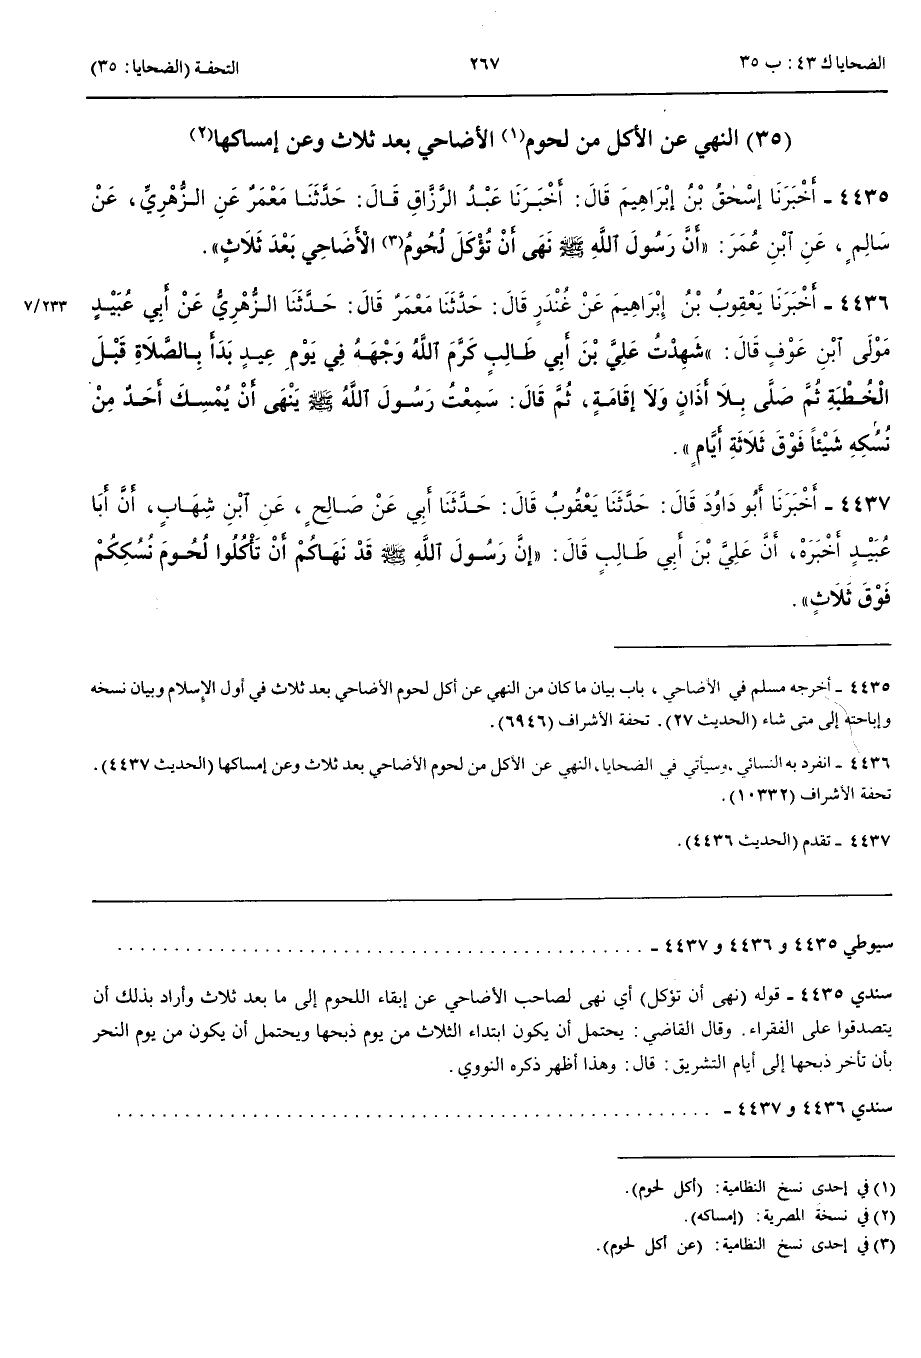 الضحايا ك ٤٣ : ب ٣٥
٢٦٧
التحفة (الضحايا : ٣٥)
(٣٥) النهي عن الأكل من لحوم(١) الأضاحي بعد ثلاث وعن إمساكها(٢)
٤٤٣٥ ـ أَخْبَرَنَا إِسْحٰقُ بْنُ إِبْرَاهِيمَ قَالَ: أَخْبَرَنَا عَبْدُ الرَّزَّاقِ قَالَ: حَدَّثَنَا مَعْمَرٌ عَنِ الزُّهْرِيِّ، عَنْ
سَالِمٍ، عَنِ ابْنِ عُمَرَ: «أَنَّ رَسُولَ اللَّهِ ﷺ نَهَى أَنْ تُؤْكَلَ لُحُومُ(٣) الْأَضَاحِي بَعْدَ ثَلَاثٍ».
٤٤٣٦ ـ أَخْبَرَنَا يَعْقُوبُ بْنُ إِبْرَاهِيمَ عَنْ غُنْدَرٍ قَالَ: حَدَّثَنَا مَعْمَرٌ قَالَ: حَدَّثَنَا الزُّهْرِيُّ عَنْ أَبِي عُبَيْدٍ
٧/٢٣٣
مَوْلَى ابْنِ عَوْفٍ قَالَ: «شَهِدْتُ عَلِيَّ بْنَ أَبِي طَالِبٍ كَرَّمَ اللَّهُ وَجْهَهُ فِي يَوْمِ عِيدٍ بَدَأَ بِالصَّلَاةِ قَبْلَ
الْخُطْبَةِ ثُمَّ صَلَّى بِلَا أَذَانٍ وَلَا إِقَامَةٍ، ثُمَّ قَالَ: سَمِعْتُ رَسُولَ اللَّهِ ﷺ يَنْهَى أَنْ يُمْسِكَ أَحَدٌ مِنْ
نُسُكِهِ شَيْئاً فَوْقَ ثَلَاثَةِ أَيَّامٍ».
٤٤٣٧ ـ أَخْبَرَنَا أَبُو دَاوُدَ قَالَ: حَدَّثَنَا يَعْقُوبُ قَالَ: حَدَّثَنَا أَبِي عَنْ صَالِحٍ، عَنِ ابْنِ شِهَابٍ، أَنَّ أَبَا
عُبَيْدٍ أَخْبَرَهُ، أَنَّ عَلِيَّ بْنَ أَبِي طَالِبٍ قَالَ: «إِنَّ رَسُولَ اللَّهِ ﷺ قَدْ نَهَاكُمْ أَنْ تَأْكُلُوا لُحُومَ نُسُكِكُمْ
فَوْقَ ثَلَاثٍ».
٤٤٣٥ ـ أخرجه مسلم في الأضاحي، باب بيان ما كان من النهي عن أكل لحوم الأضاحي بعد ثلاث في أول الإسلام وبيان نسخه
وإباحته إلى متى شاء (الحديث ٢٧). تحفة الأشراف (٦٩٤٦).
٤٤٣٦ ـ انفرد به النسائي، وسيأتي في الضحايا، النهي عن الأكل من لحوم الأضاحي بعد ثلاث وعن إمساكها (الحديث ٤٤٣٧).
تحفة الأشراف (١٠٣٣٢).
٤٤٣٧ ـ تقدم (الحديث ٤٤٣٦).
سيوطي ٤٤٣٥ و ٤٤٣٦ و ٤٤٣٧ ـ . . . . . . . . . . . . . . . . . . . . . . . . . . . . . . . . . . . . . . . . .
سندي ٤٤٣٥ ـ قوله (نهى أن تؤكل) أي نهى لصاحب الأضاحي عن إبقاء اللحوم إلى ما بعد ثلاث وأراد بذلك أن
يتصدقوا على الفقراء. وقال القاضي: يحتمل أن يكون ابتداء الثلاث من يوم ذبحها ويحتمل أن يكون من يوم النحر
بأن تأخر ذبحها إلى أيام التشريق: قال: وهذا أظهر ذكره النووي.
سندي ٤٤٣٦ و ٤٤٣٧ ـ . . . . . . . . . . . . . . . . . . . . . . . . . . . . . . . . . . . . . . . . . . . . . .
(١) في إحدى نسخ النظامية: (أكل لحوم).
(٢) في نسخة المصرية: (إمساكه).
(٣) في إحدى نسخ النظامية: (عن أكل لحوم).